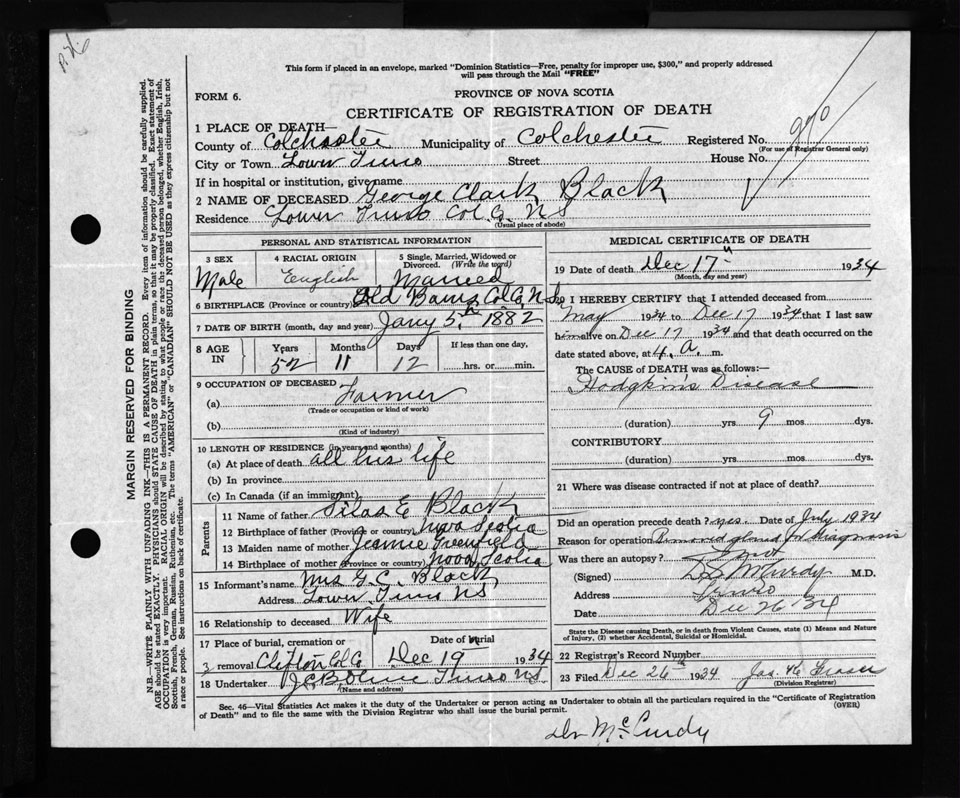 This form if placed in an envelope, marked "Dominion Statistics—Free, penalty for improper use, $300," and properly addressed
will pass through the Mail "FREE"
FORM 6.
PROVINCE OF NOVA SCOTIA
CERTIFICATE OF REGISTRATION OF DEATH
1 PLACE OF DEATH—
County of Colchester Municipality of Colchester Registered No.
(For use of Registrar General only)
City or Town Lower Truro Street House No.
If in hospital or institution, give name
2 NAME OF DECEASED George Clark Black
Residence Lower Truro Col. Co. NS
(Usual place of abode)
PERSONAL AND STATISTICAL INFORMATION
3 SEX 4 RACIAL ORIGIN 5 Single, Married, Widowed or
Divorced. (Write the word)
Male English Married
6 BIRTHPLACE (Province or country) Old Barns Col Co, N.S.
7 DATE OF BIRTH (month, day and year) Jany 5th 1882
8 AGE IN Years Months Days If less than one day,
52 11 12 hrs. or min.
9 OCCUPATION OF DECEASED
(a) Farmer
(Trade or occupation or kind of work)
(b)
(Kind of industry)
10 LENGTH OF RESIDENCE (in years and months)
(a) At place of death all his life
(b) In province
(c) In Canada (if an immigrant)
Parents
11 Name of father Silas E Black
12 Birthplace of father (Province or country) Nova Scotia
13 Maiden name of mother Jennie Greenfield
14 Birthplace of mother (Province or country) Nova Scotia
15 Informant's name Mrs G. C. Black
Address Lower Truro NS
16 Relationship to deceased Wife
17 Place of burial, cremation or Date of burial
removal Clifton Col Co Dec 19th 1934
18 Undertaker Truro NS
(Name and address)
MEDICAL CERTIFICATE OF DEATH
19 Date of death Dec 17th 1934
(Month, day and year)
20 I HEREBY CERTIFY that I attended deceased from
May 1934 to Dec 17 1934 that I last saw
him alive on Dec 17 1934 and that death occurred on
date stated above, at 4. a. m.
The CAUSE of DEATH was as follows:—
Hodgkin's Disease
(duration) yrs 9 mos dys.
CONTRIBUTORY
(duration) yrs. mos. dys.
21 Where was disease contracted if not at place of death?
Did an operation precede death? yes. Date of July 1934
Reason for operation Removed gland for diagnosis
Was there an autopsy? not
(Signed) D S McCurdy M.D.
Address Truro
Date Dec 26 '34
State the Disease causing Death, or in death from Violent Causes, state (1) Means and Nature
of Injury, (2) whether Accidental, Suicidal or Homicidal.
22 Registrar's Record Number
23 Filed Dec 26th 1934 Jas. Fraser
(Division Registrar)
Sec. 46—Vital Statistics Act makes it the duty of the Undertaker or person acting as Undertaker to obtain all the particulars required in the "Certificate of Registration
of Death" and to file the same with the Division Registrar who shall issue the burial permit. (OVER)
Dr McCurdy
MARGIN RESERVED FOR BINDING
N.B.—WRITE PLAINLY WITH UNFADING INK—THIS IS A PERMANENT RECORD. Every item of information should be carefully supplied.
AGE should be stated EXACTLY. PHYSICIANS should STATE CAUSE OF DEATH in plain terms, so that it may be properly classified. Exact statement of
OCCUPATION is very important. RACIAL ORIGIN will be described by stating to what people or race the deceased person belonged, whether English, Irish,
Scottish, French, German, Russian, Ruthenian, etc. The terms "AMERICAN" or "CANADIAN" SHOULD NOT BE USED as they express citizenship but not
a race or people. See instructions on back of certificate.